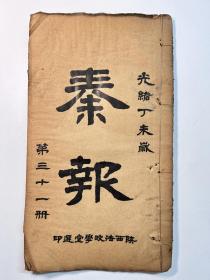 光緒丁未歲
秦報
第三十一冊
陝西法政學堂選印